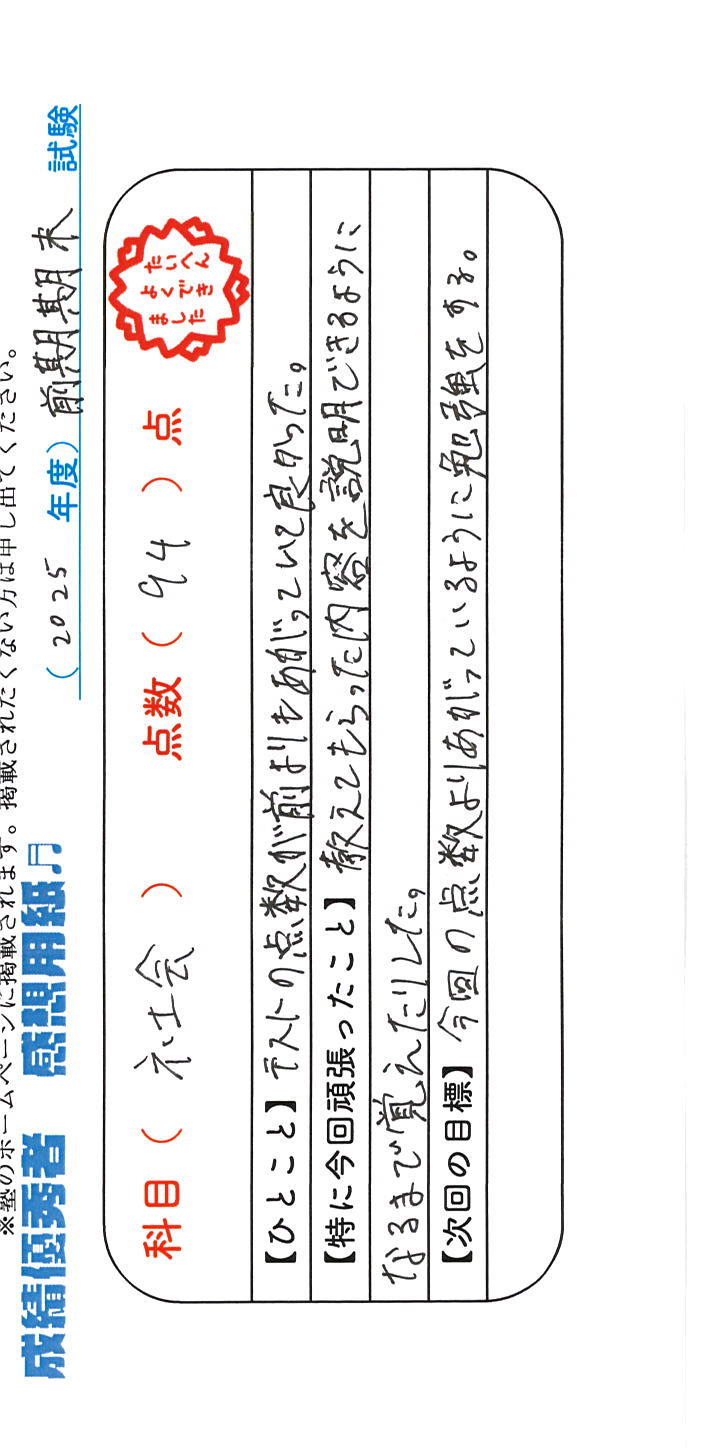 ※塾のホームページに掲載されます。掲載されたくない方は申し出てください。
成績優秀者 感想用紙♫ (2025 年度) 前期期末 試験
科目( 社会 ) 点数( 94 )点
たいへん
よくでき
ました
【ひとこと】テストの点数が前よりもあがっていて良かった。
【特に今回頑張ったこと】教えてもらった内容を説明できるように
なるまで覚えたりした。
【次回の目標】今回の点数よりあがっているように勉強をする。